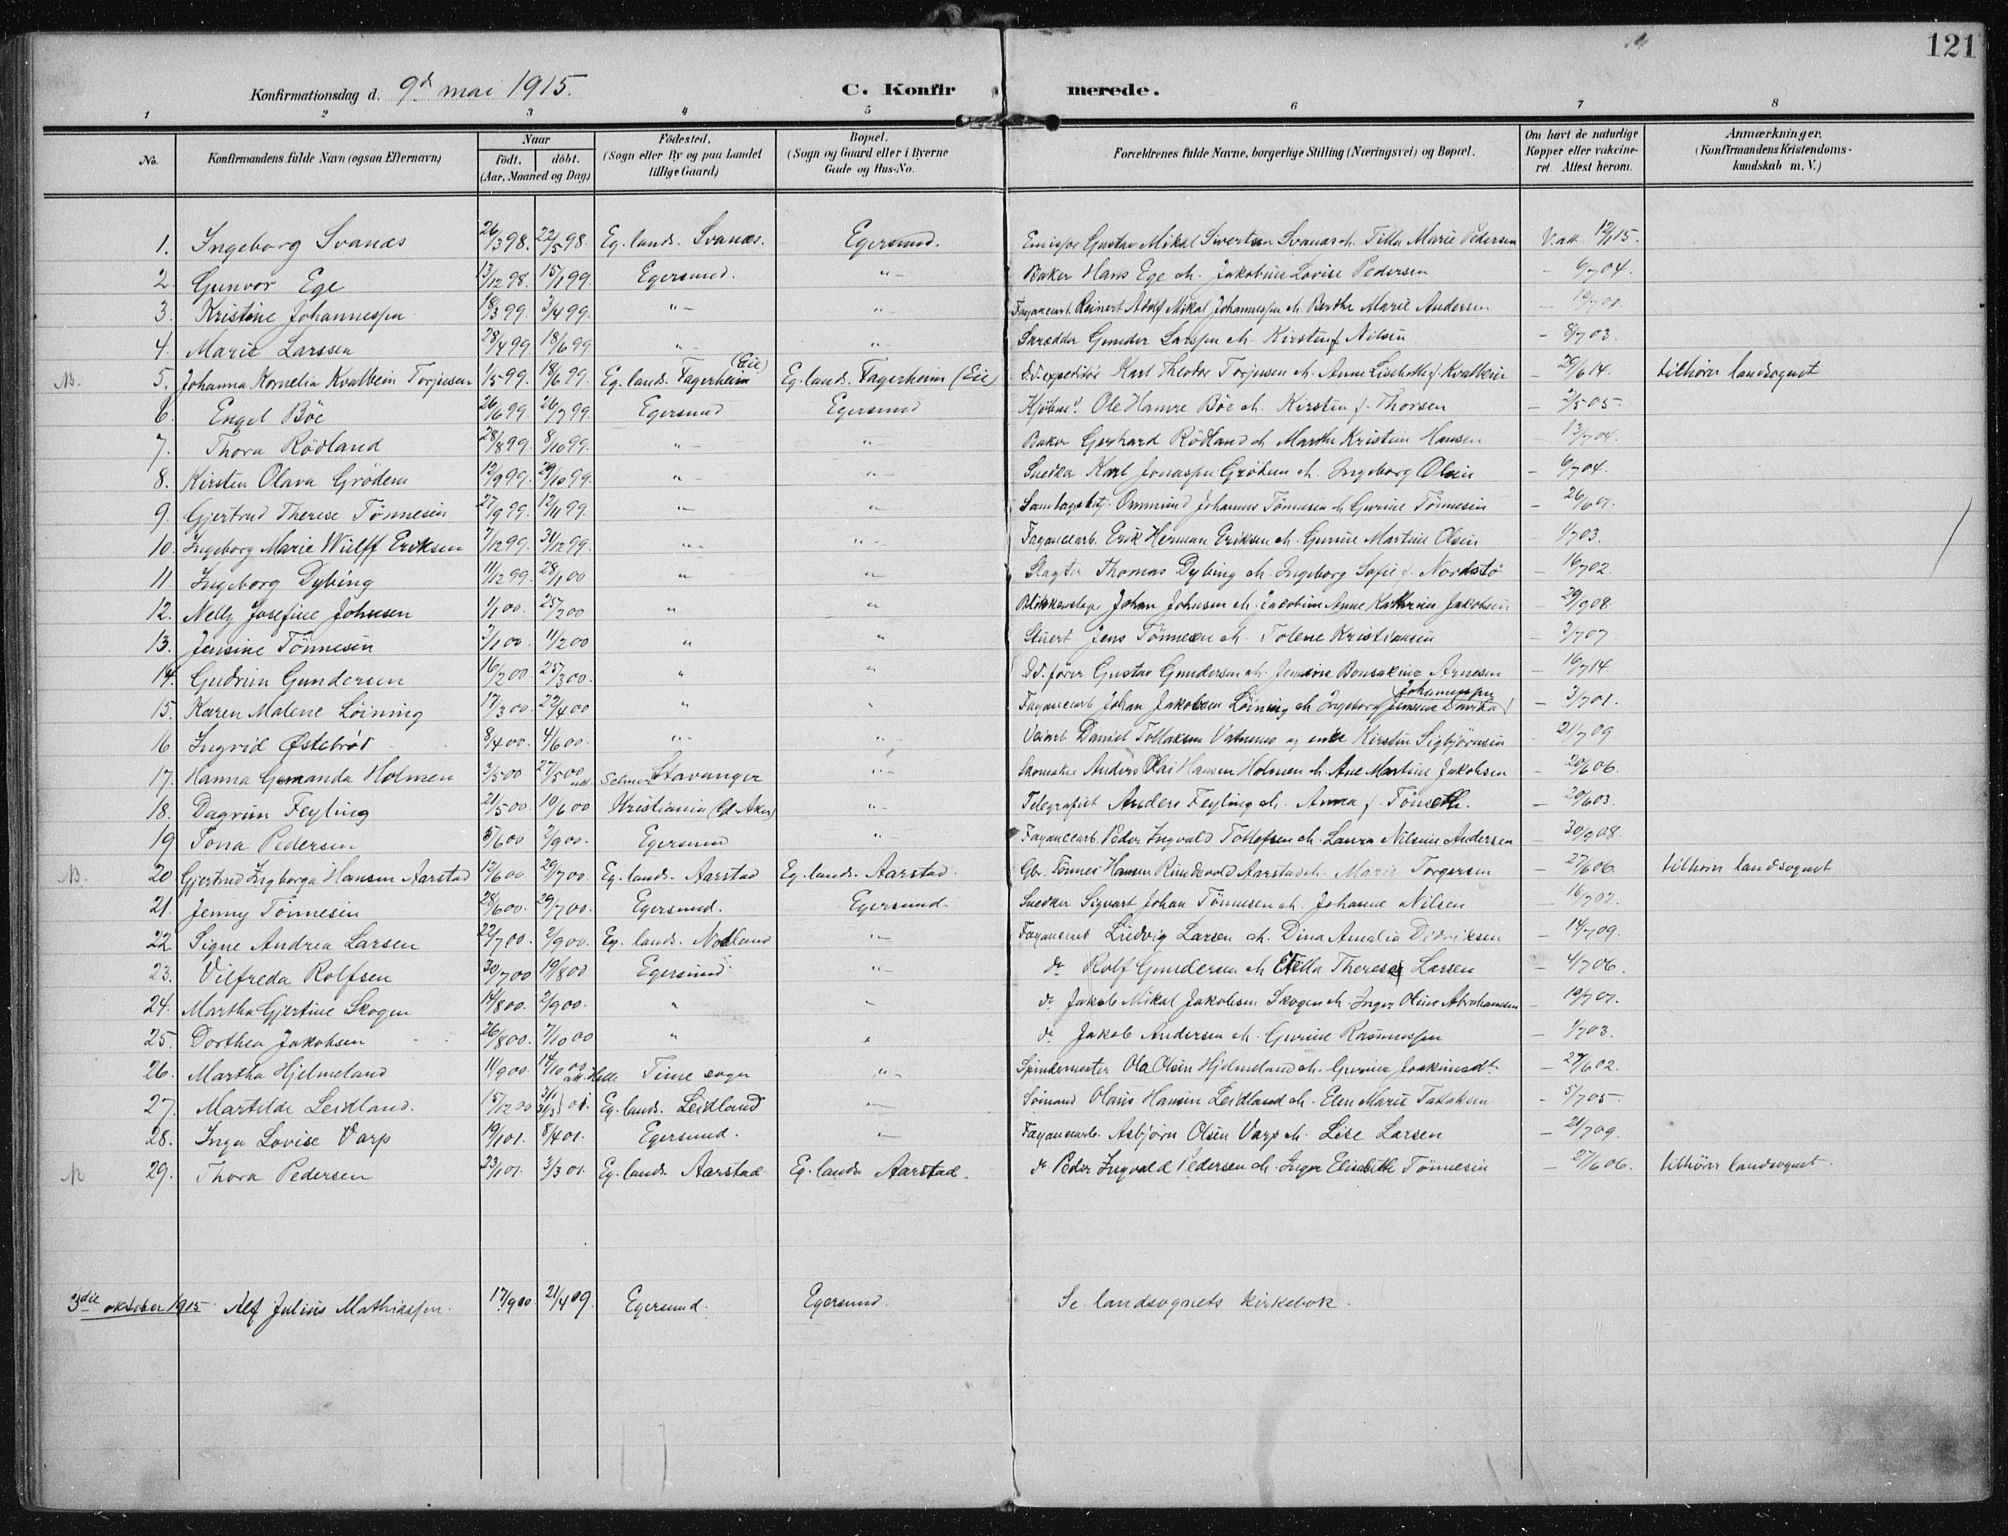 121
Konfirmationsdag d. 9d mai 1915.
C. Konfir merede.
1 2 3 4 5 6 7 8
No. Konfirmandens fulde Navn (ogsaa Efternavn) Naar födt. döbt. (Aar, Maaned og Dag) Födested. (Sogn eller By og paa Landet tillige Gaard) Bopæl. (Sogn og Gaard eller i Byerne Gade og Hus-No. Forældrenes fulde Navne, borgerlige Stilling (Næringsvei) og Bopæl. Om havt de naturlige Kopper eller vakcineret. Attest herom. Anmærkninger. (Konfirmandens Kristendomskundskab m. V.)
1. Ingeborg Svanæs 26/3 98. 22/5 98. Eg. lands. Svanæs. Egersund. Gustav Mikal Sivertsen Svanæs &. Tilla Marie Pedersen V. att. 12/1 15.
2. Gunvor Ege 13/12 98. 15/1 99. Egersund. "- Baker Hans Ege &. Jakobine Lovise Pedersen - 6/7 04.
3. Kristine Johannessen 18/3 99. 3/4 99. "- "- Fayancearb. Reinert Adolf Mikal Johannessen &. Berthe Marie Andersen -
4. Marie Larssen 28/4 99. 18/6 99 "- "- Skrædder Gunder Larssen &. Kirsten f. Nilsen - 8/7 03.
5. Johanna Kornelia Kvalbein Torjusen 1/5 99. 18/6 99. Eg. lands. Fagerheim (Eie) Eg. lands. Fagerheim (Eie) D.d. expeditör Karl Theodor Torjusen &. Anne Lisebeth f. Kvalbein - 29/6 14. tilhörer landsognet
6. Engel Böe 26/6 99. 26/7 99. Egersund Egersund Kjöbm. Ole Hamre Böe &. Kirsten f. Thorsen - 2/5 05.
7. Thora Rödland 28/8 99. 8/10 99. "- "- Baker Gerhard Rödland &. Marthe Kristine Hansen - 13/7 04.
8. Kirsten Olava Grödem 12/9 99. 29/10 99. "- "- Snedker Karl Jonassen Grödem &. Ingeborg Olsen - 6/7 04.
9. Gjertrud Therese Tönnesen 27/9 99. 12/11 99. "- "- Ommund Johannes Tönnesen &. Gurine Tönnesen - 26/6 01.
10. Ingeborg Marie Wulff Eriksen 7/12 99. 31/12 99. "- "- Fayancearb. Erik Herman Eriksen &. Gurine Martine Olsen - 1/7 03.
11. Ingeborg Dybing 11/12 99. 28/1 00 " "- Slagter Thomas Dybing &. Ingeborg Sofie f. Nordstö - 16/7 02.
12. Nelly Josefine Johnsen 1/1 00. 25/2 00 " " Johan Johnsen &. Jakobine Anne Kathrine Jakobsen - 29/9 08.
13. Jensine Tönnesen 2/1 00. 11/2 00 " " Stuert Jens Tönnesen &. Tolene Kristiansen - 2/7 07.
14. Gudrun Gundersen 16/2 00. 25/3 00. " " D.d. förer Gustav Gundersen &. Bonsakine Arnesen - 16/7 14.
15. Karen Malene Löining 17/3 00. 22/4 00 " " Fayancearb Johan Jakobsen Löining &. Ingeborg Jensine Johannessen - 3/7 01.
16 Ingrid Östebrød 8/4 00. 4/6 00. "- "- Veiarb. Daniel Tollaksen Vatnemo og enke Kirsten Sigbjörnsen - 21/7 09
17. Hanna Gemanda Holmen 3/5 00 27/5 00 Stavanger "- Skomaker Anders Olai Hansen Holmen &. Ane Martine Jakobsen - 20/6 06.
18. Dagrun Feyling 21/5 00. 10/6 00 Kristiania (Gl. Aker) "- Telegrafist Anders Feyling &. Anna f. Tönseth. - 20/6 03.
19 Tona Pedersen 5/6 00 2/9 00. Egersund "- Fayancearb. Peder Ingvald Tollefsen &. Laura Nilsine Andersen - 30/9 08.
20 Gjertrud Ingborga Hansen Aarstad 12/6 00. 29/7 00. Eg. lands. Aarstad Eg. lands. Aarstad. Gbr. Tönnes Hansen Aarstad &. Marie Torgersen - 27/6 06. tilhörer landsognet
21. Jenny Tönnesen 28/6 00. 29/7 00. Egersund. Egersund Snedker Sigvart Johan Tönnesen &. Johanne Nilsen - 16/7 02.
22 Signe Andrea Larsen 22/7 00. 2/9 00. Eg. lands. Nodland "- Fayancearb Ludvig Larsen &. Dina Amalia Didriksen - 14/7 09.
23. Vilfreda Rolfsen 30/7 00 19/8 00 Egersund. "- do Rolf Gundersen &. Therese Larsen - 4/7 06.
24. Martha Gjertine Skogen 14/8 00. 2/9 00. " "- do Jakob Mikal Jakobsen Skogen &. Inger Oline Abrahamsen - 19/7 07.
25. Dorthea Jakobsen 26/8 00. 7/10 00 " " do Jakob Andersen &. Gurine Rasmussen - 1/7 03.
26. Martha Hjelmeland 11/9 00. 14/10 00 Time sogn "- Spindemester Ola Olsen Hjelmeland &. Gurine Joakimsdt. - 27/6 02.
27. Martilde Leidland. 15/12 00 3/1 31/3 01. Eg. lands. Leidland "- Sömand Olaus Hansen Leidland &. Elen Marie Tollaksen - 5/7 05.
28. Inga Lovise Varp 19/1 01. 8/4 01. Egersund. "- Fayancearb. Asbjörn Olsen Varp &. Lise Larsen - 21/7 09.
29. Thora Pedersen 23/1 01. 3/3 01. Eg. lands. Aarstad Eg. lands Aarstad. do Peder Ingvald Pedersen &. Inger Elisabeth Tönnesen - 27/6 06. tilhörer landsognet.
3die oktober 1915 Alf Julius Mathiassen. 17/9 00 21/4 09. Egersund. Egersund. Se landsognets kirkebok.